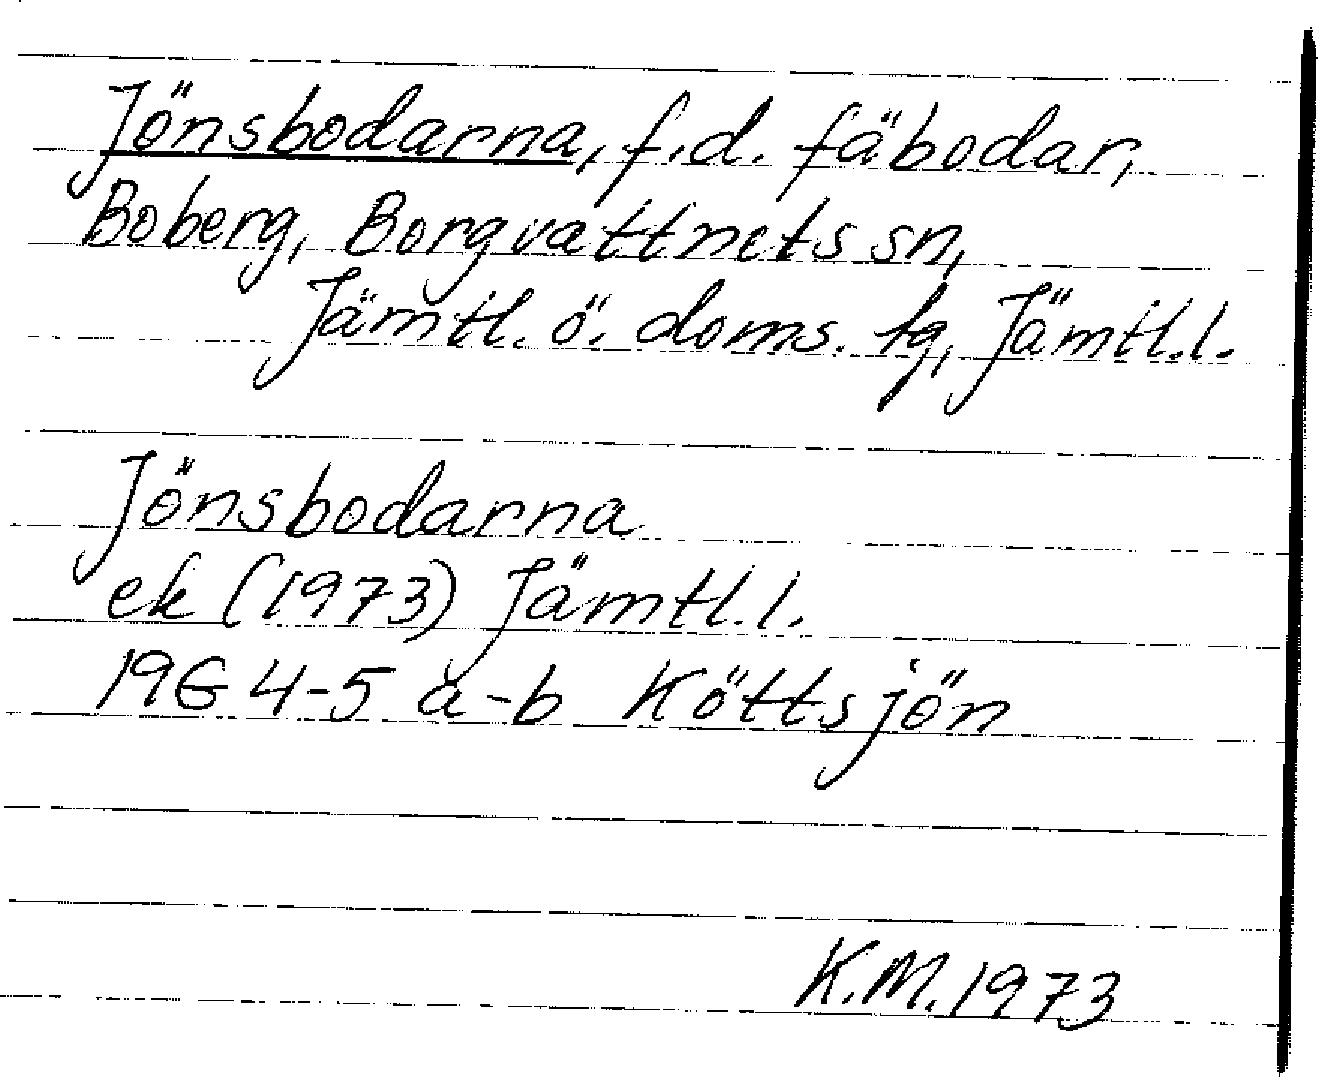 Jönsbodarna, f.d. fäbodar,
Boberg, Borgvattnets sn,
Jämtl. ö. doms. tg, Jämtl.l.
Jönsbodarna
ek (1973) Jämtl.l.
19G 4-5 a-b Köttsjön
K.M. 1973